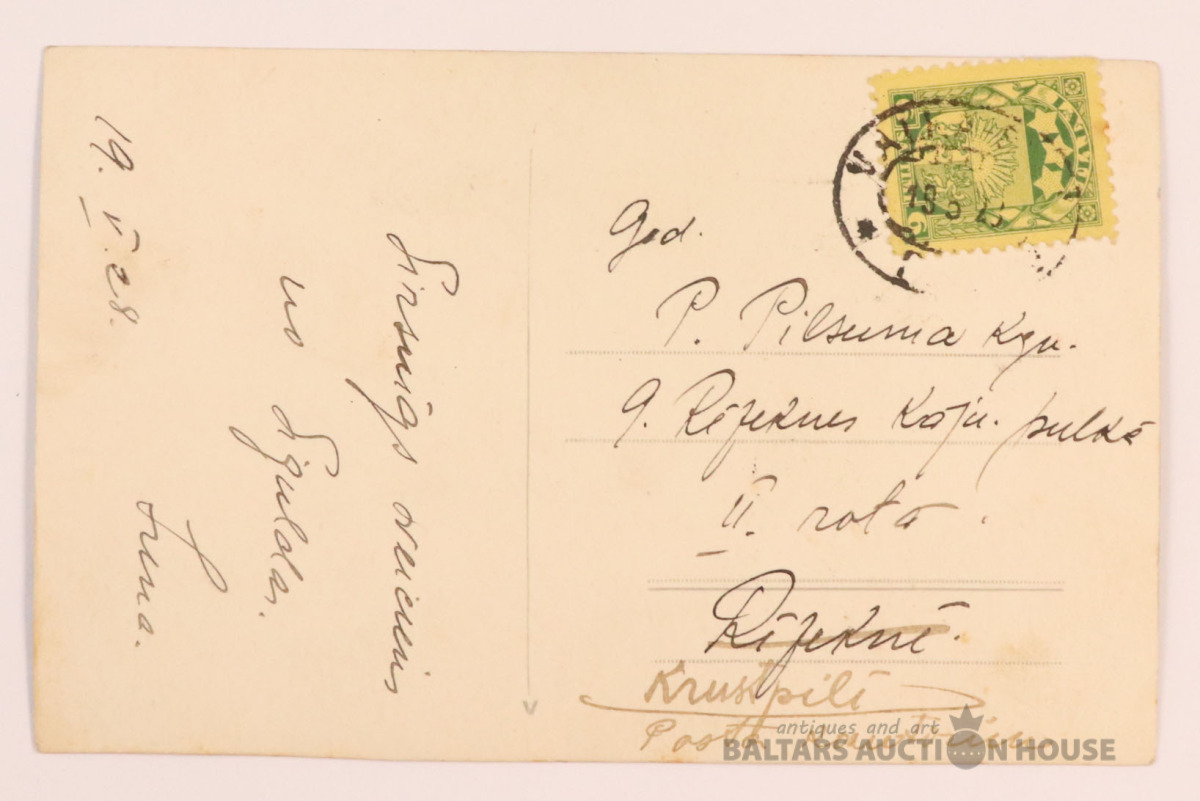 19. V. 28.
Sirsnigs sveiciens
no Siguldas.
Irma.
God.
P. Pilsuma kgu.
9. Rēzeknes Kājn. pulkā
II. rotā.
Rēzeknē.
Krustpilī
Pasta
LATVIJA
antiques and art
BALTARS AUCTION HOUSE